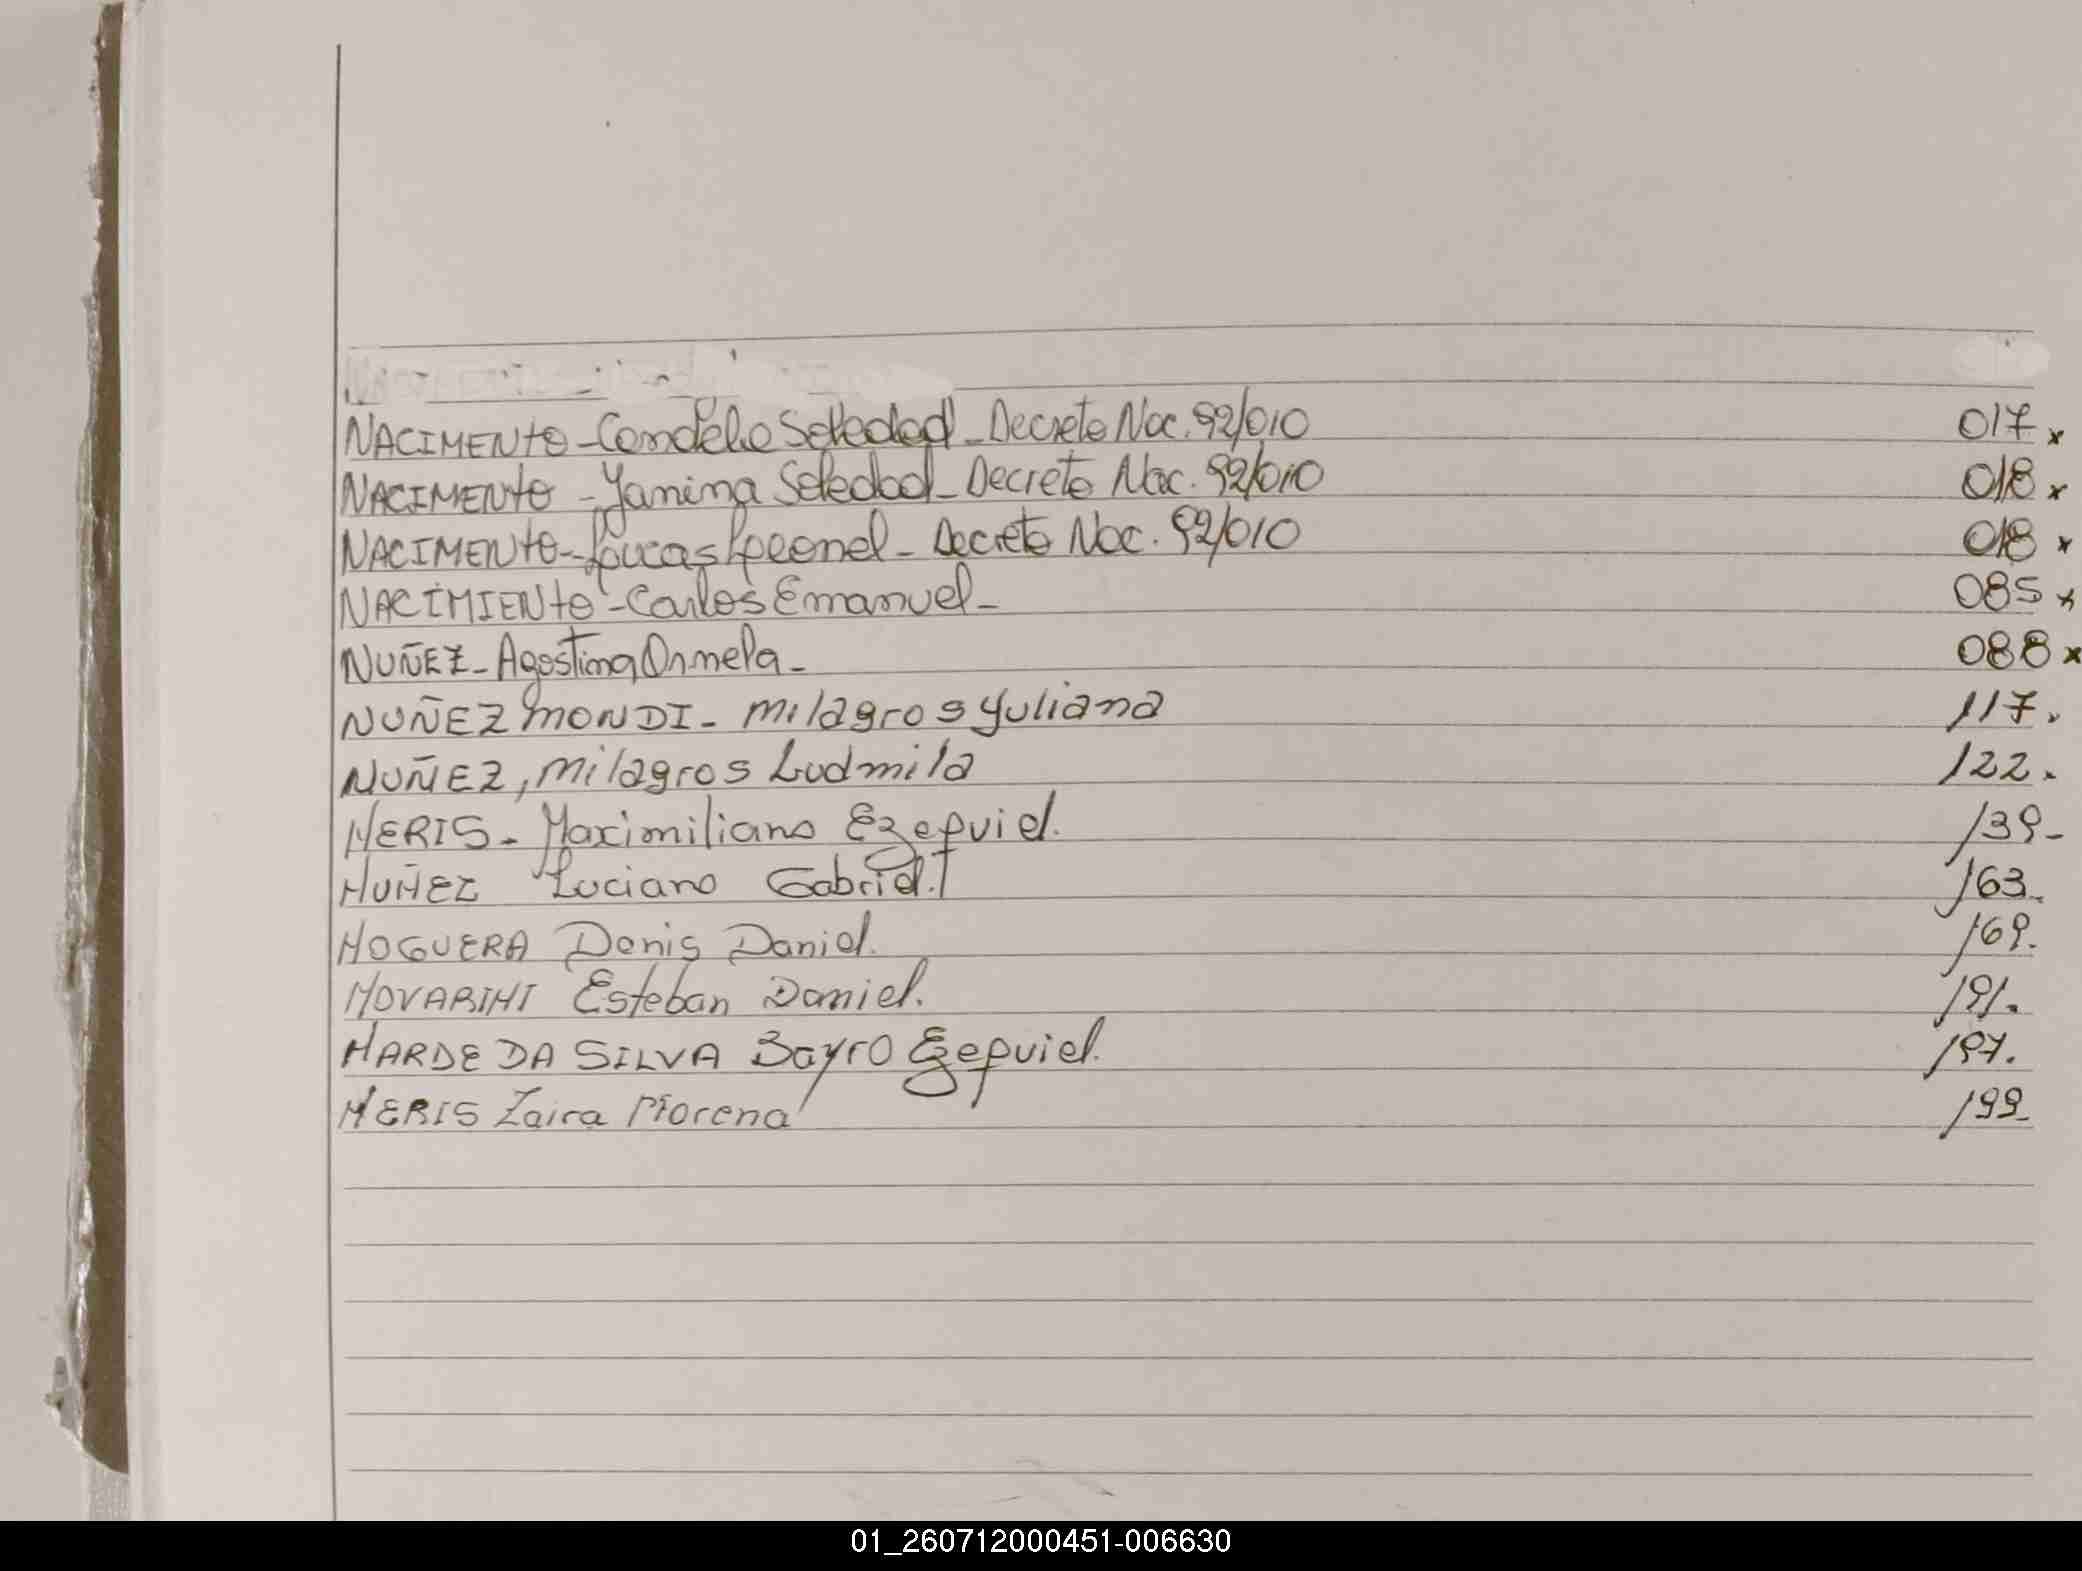 NACIMENTO - Candela Soledad - Decreto Nac. 92/010 017 x
NACIMENTO - Yanina Soledad - Decreto Nac. 92/010 018 x
NACIMENTO - Lucas Leonel - Decreto Nac. 92/010 018 x
NACIMIENTO - Carlos Emanuel - 085 x
NUÑEZ - Agostina Ornela - 088 x
NUÑEZ MONDI - Milagros Yuliana 117.
NUÑEZ, Milagros Ludmila 122.
NERIS - Maximiliano Ezequiel. 139-
NUÑEZ Luciano Gabriel. 163.
NOGUERA Denis Daniel. 169.
NOVARINI Esteban Daniel. 191.
NARDE DA SILVA Bayro Ezequiel. 197.
NERIS Zaira Morena 199.
01_260712000451-006630